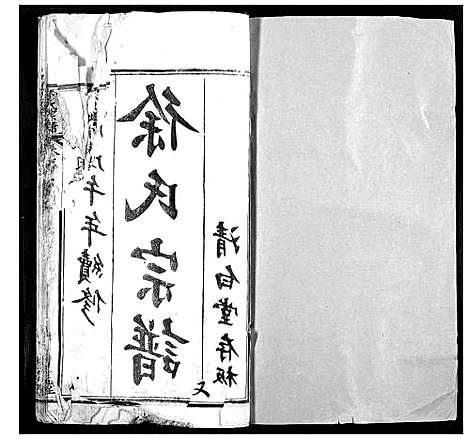 清白堂存板
又
徐氏宗譜
午年續修